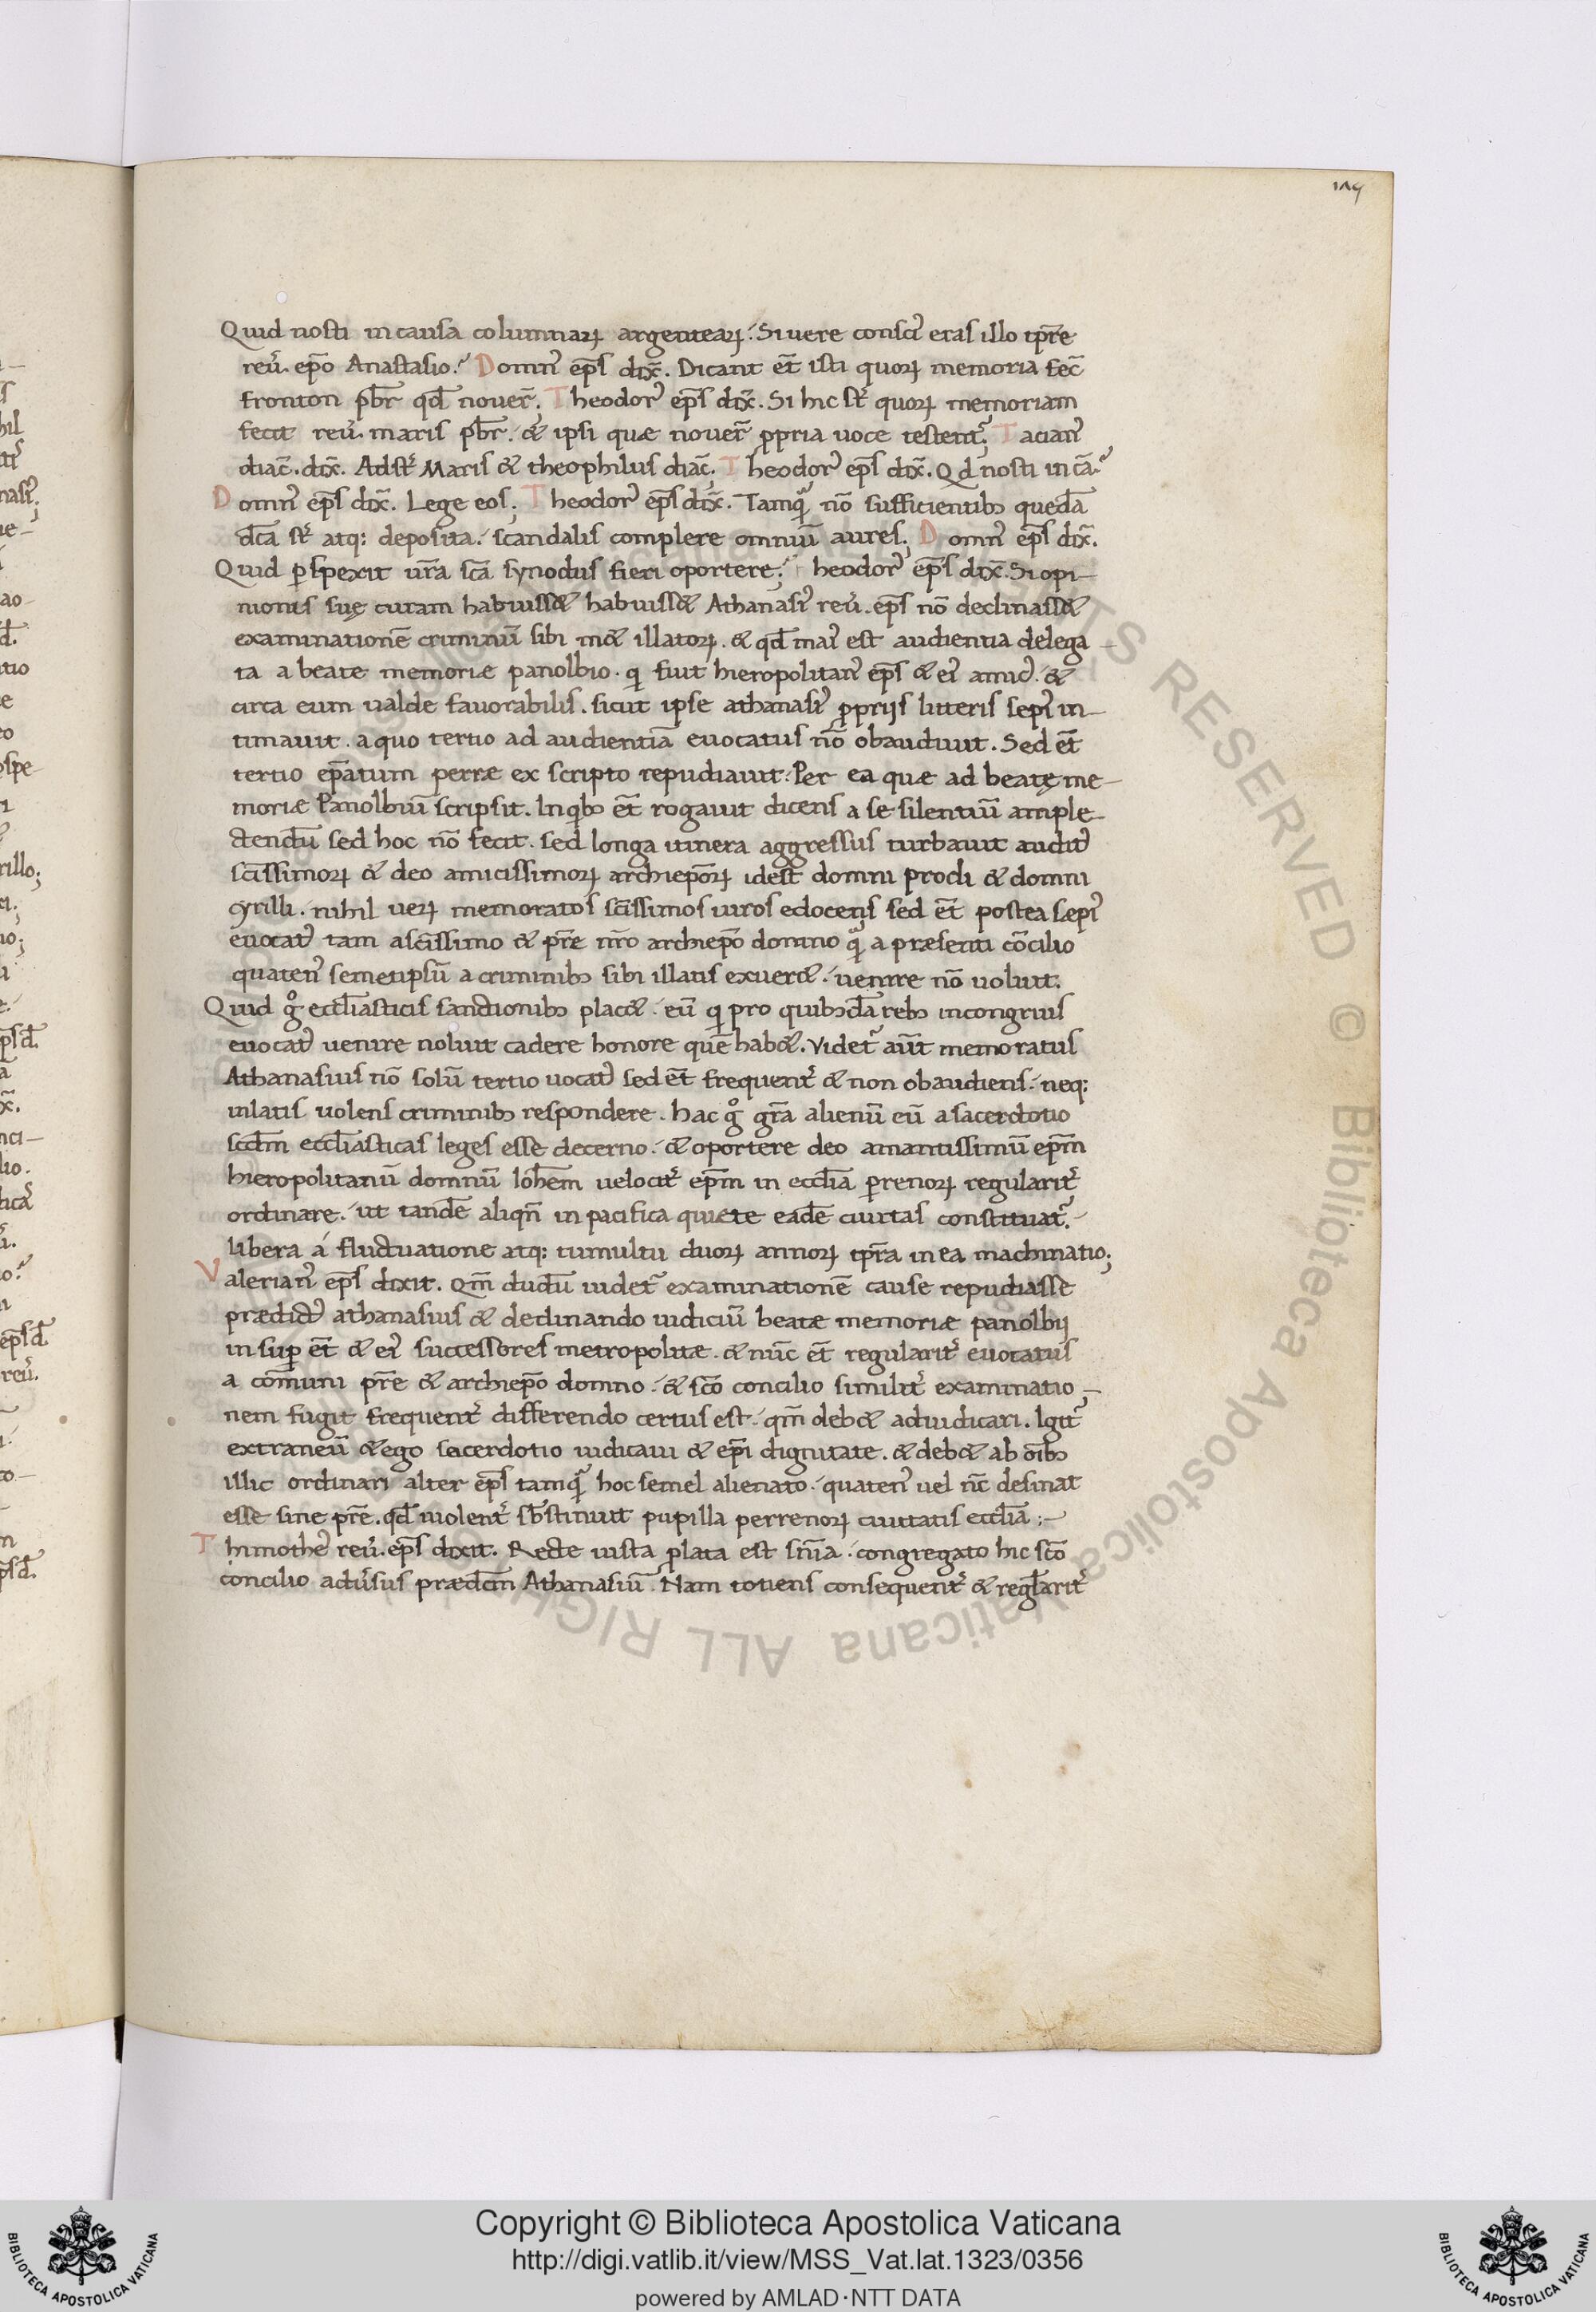 189
Quid nosti in causa columnaꝝ argenteaꝝ. Si uere consci᾽ eras illo tp̄re
reu̅. ep̄o Anastasio? Domn᾽ ep̄s dix̄. Dicant et̄ isti quoꝝ memoria fec̄
fronton pb̄r qd̄ nouer̄. Theodor᾽ ep̄s dix̄. Si hic st̄ quoꝝ memoriam
fecit reu̅. maris pb̄r. & ipsi quæ nouer̄ ꝓpria uoce testent᾽. Tacian᾽
diac̄. dix̄. Adst̄ Maris & theophilus diac̄. Theodor᾽ ep̄s dix̄. Qd̄ nosti in cā?
Domn᾽ ep̄s dix̄. Lege eos; Theodor᾽ ep̄s dix̄. Tamqͣ nō sufficientib; quedā
dc̄a st̄ atq: deposita. scandalis complere omniū aures; Domn᾽ ep̄s dix̄.
Quid ꝑspexit ur̄a sc̄a synodus fieri oportere; Theodor᾽ ep̄s dix̄. Si opi-
nionis suę curam habuiss& habuiss& Athanasi᾽ reu̅. ep̄s nō declinass&
examinationē criminū sibi m& illatoꝝ. & qd̄ mai᾽ est audientia delega-
ta a beate memoriæ panolbio. qi fuit hieropolitan᾽ ep̄s & ei᾽ amic᾽. &
circa eum ualde fauorabilis. sicut ipse athanasi᾽ ꝓprijs litteris sepi᾽ in-
timauit. a quo tertio ad audientiā euocatus nō obaudiuit. Sed et̄
tertio ep̄atum perræ ex scripto repudiauit. Per ea quæ ad beatę me-
moriæ Panolbiū scripsit. In qib; et̄ rogauit dicens a se silentiū ample-
ctendū sed hoc nō fecit. sed longa itinera aggressus turbauit audit᾽
sc̄issimoꝝ & deo amicissimoꝝ archiep̄oꝝ idest domni procli & domni
cyrilli. nihil ueꝝ memoratos sc̄issimos uiros edocens sed et̄ postea sæpi᾽
euocat᾽ tam a sc̄issimo & pr̄e nr̄o archiep̄o domno qͣ a præsenti cōcilio
quaten᾽ semetipsū a criminib; sibi illatis exuer&. uenire nō uoluit.
Quid gͦ eccl̄iasticis sanctionib; plac&. eū qi pro quibusdā reb; incongruis
euocat᾽ uenire noluit cadere honore quē hab&. Videt᾽ aūt memoratus
Athanasius nō solū tertio uocat᾽ sed et̄ frequent᾽ & non obaudiens. neq:
inlatis uolens criminib; respondere. hac gͦ gr̄a alienū eū a sacerdotio
scd̄m eccl̄iasticas leges esse decerno. & oportere deo amantissimū ep̄m
hieropolitanū domnū Ioh̄em uelocit᾽ ep̄m in eccl̄ia ꝑrenoꝝ regularit᾽
ordinare. ut tandē aliqn̄ in pacifica quiete eadē ciuitas constituat᾽.
libera á fluctuatione atq: tumultu duoꝝ annoꝝ tp̄ra in ea machinatio;
Valerian᾽ ep̄s dixit. Qm̄ dudū uidet᾽ examinationē cause repudiasse
prædict᾽ athanasius & declinando iudiciū beatæ memoriæ panolbij
insuꝑ et̄ & ei᾽ successores metropolitæ. & nūc et̄ regularit᾽ euocatus
a cōmuni pr̄e & archiep̄o domno. & sc̄o concilio similit᾽ examinatio-
nem fugit frequent᾽ differendo certus est. qm̄ deb& adiudicari. Igit᾽
extraneū & ego sacerdotio iudicaui & ep̄i dignitate. & deb& ab oīb;
illic ordinari alter ep̄s tamqͣ hoc semel alienato. quaten᾽ uel nc̄ desinat
esse sine pr̄e. qd̄ uiolent᾽ sb̄stinuit pupilla perrenoꝝ ciuitatis eccl̄ia;
Thimothe᾽ reu̅. ep̄s dixit. Recte iusta ꝓlata est sn̄ia. congregato hic sc̄o
concilio adu̅sus prædc̄m Athanasiū. Nam totiens consequent᾽ & regl̄arit᾽
Copyright © Biblioteca Apostolica Vaticana
http://digi.vatlib.it/view/MSS_Vat.lat.1323/0356
powered by AMLAD·NTT DATA